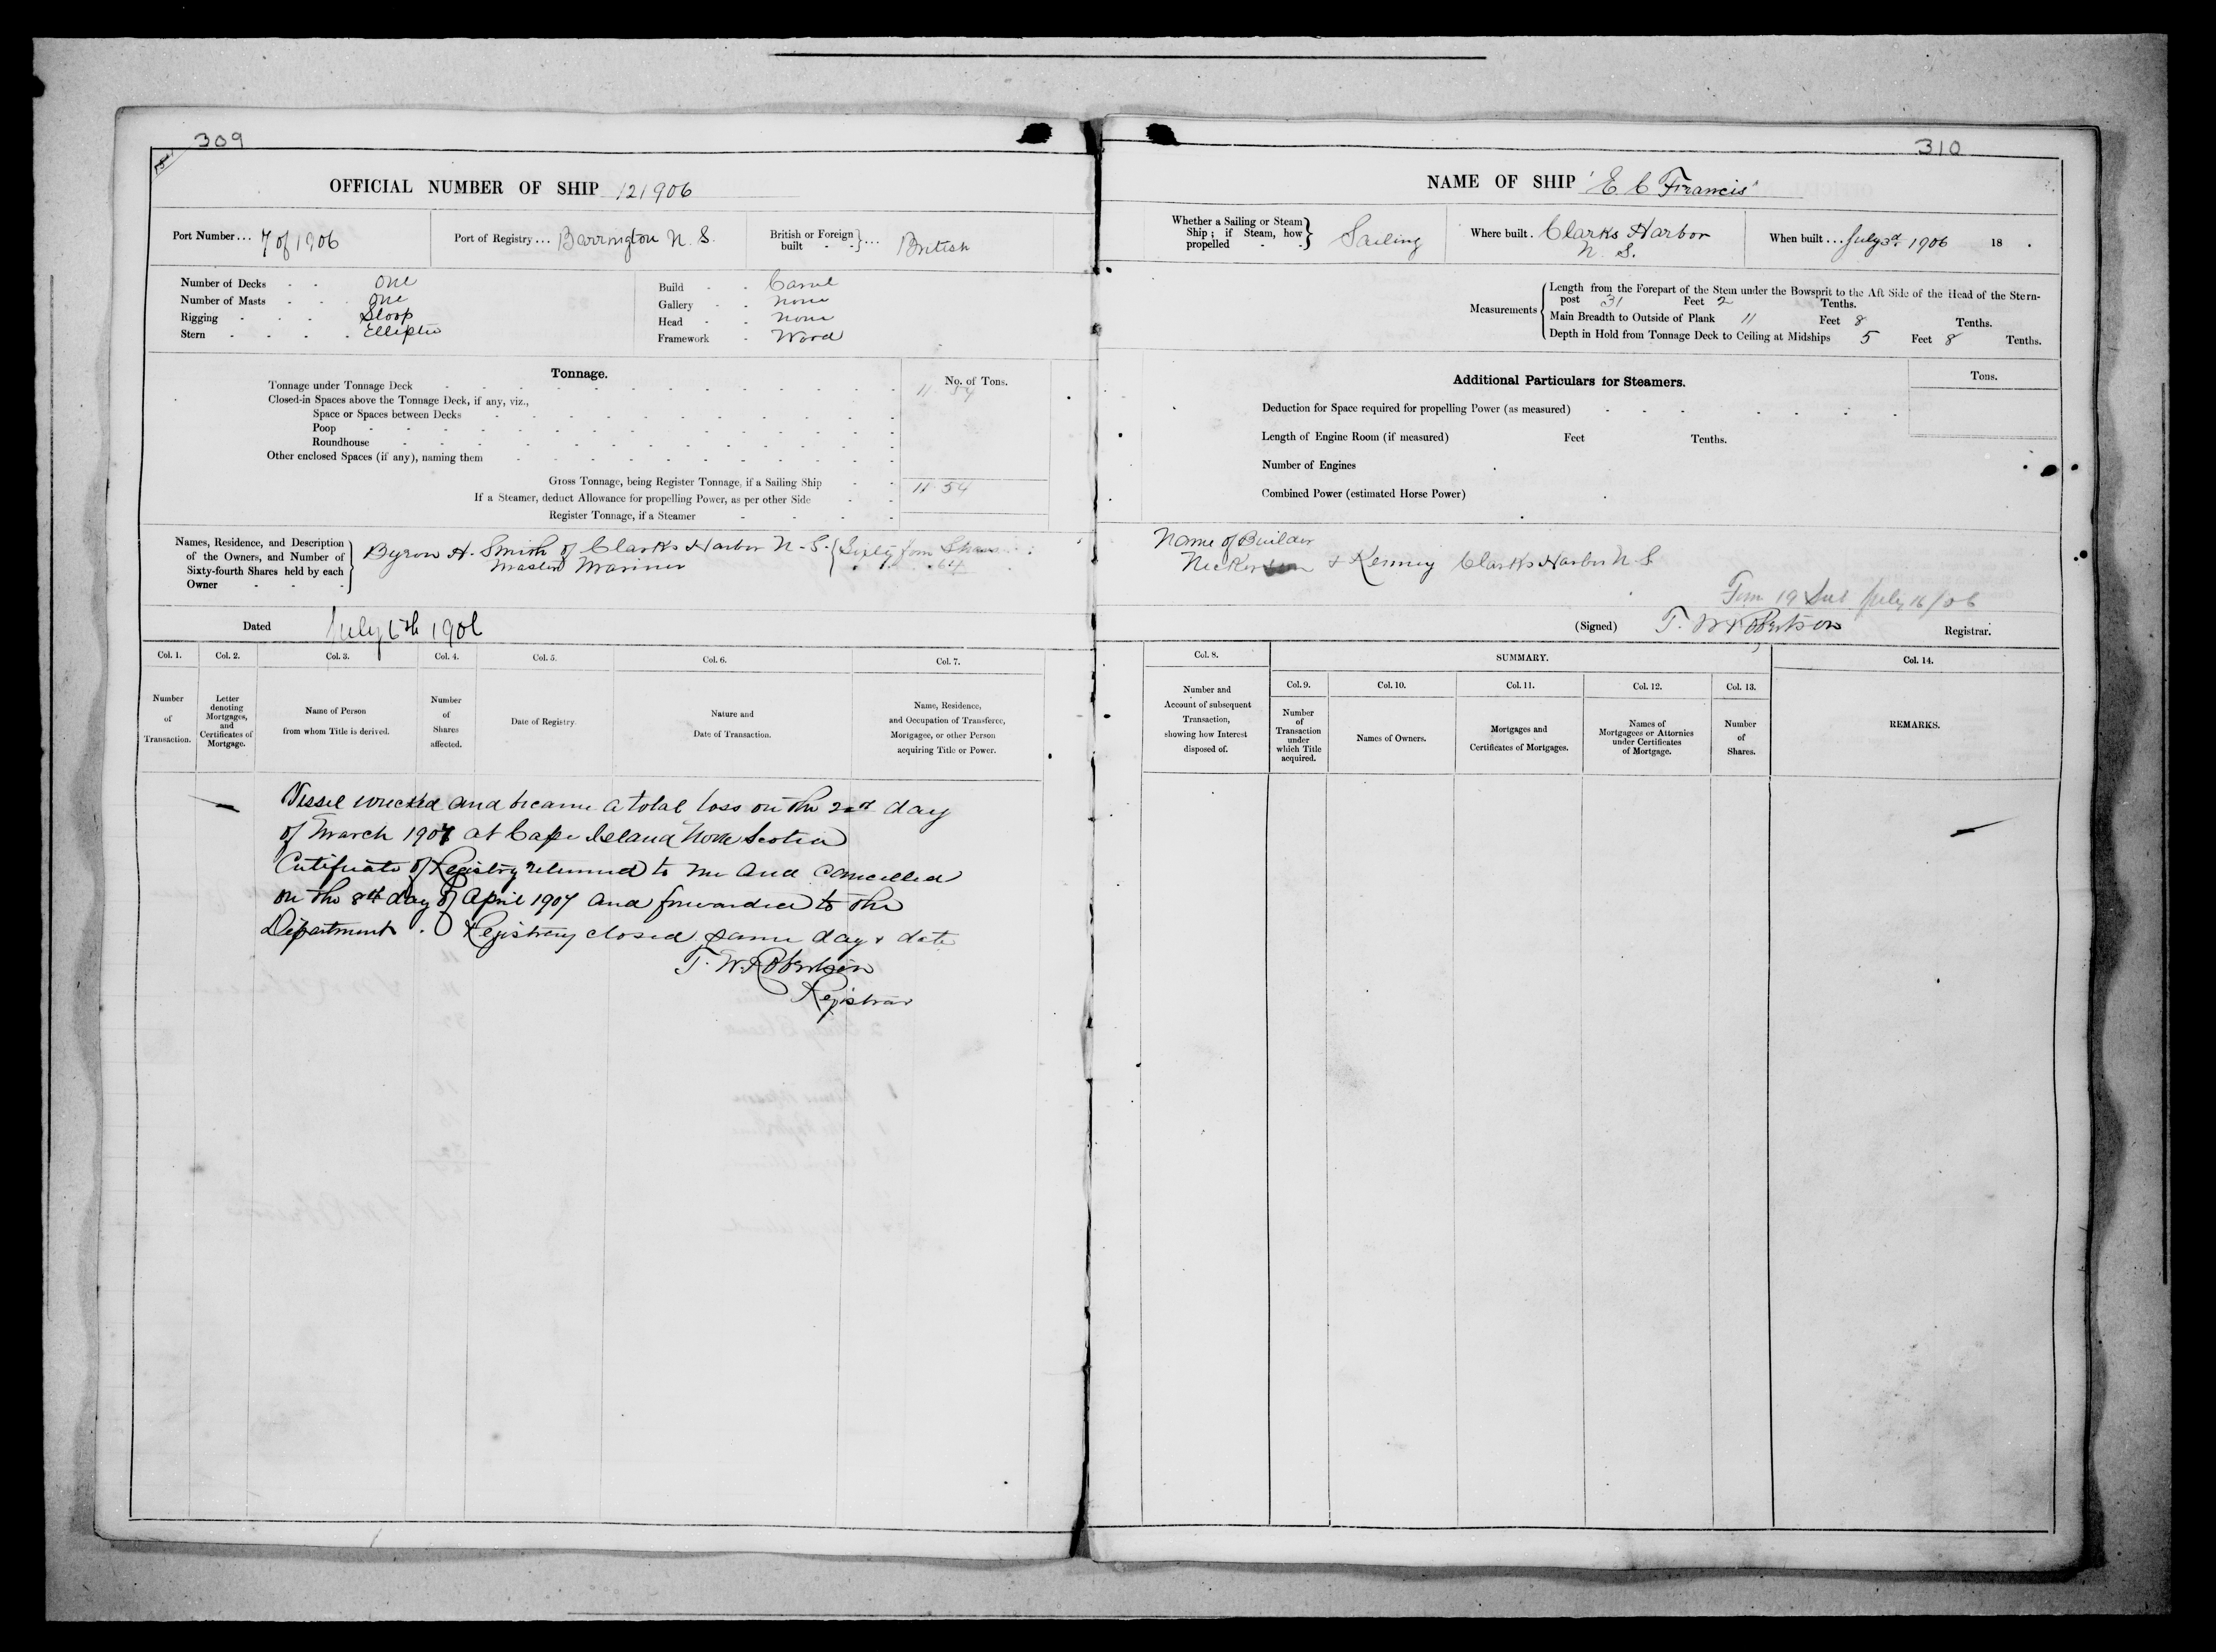 309
OFFICIAL NUMBER OF SHIP 121906
Port Number... 7 of 1906
Port of Registry... Barrington N. S.
British or Foreign built } ... British
Number of Decks One
Number of Masts One
Rigging Sloop
Stern Elliptic
Build Carvel
Gallery none
Head none
Framework Wood
Tonnage.
No. of Tons.
Tonnage under Tonnage Deck 11.54
Closed-in Spaces above the Tonnage Deck, if any, viz.,
Space or Spaces between Decks
Poop
Roundhouse
Other enclosed Spaces (if any), naming them
Gross Tonnage, being Register Tonnage, if a Sailing Ship 11.54
If a Steamer, deduct Allowance for propelling Power, as per other Side
Register Tonnage, if a Steamer
Names, Residence, and Description of the Owners, and Number of Sixty-fourth Shares held by each Owner
Byron A. Smith of Clarks Harbor N. S. { Sixty four Shares
Master Mariner 64
Dated July 6th 1906
Col. 1. Col. 2. Col. 3. Col. 4. Col. 5. Col. 6. Col. 7.
Number of Transaction.
Letter denoting Mortgages, and Certificates of Mortgage.
Name of Person from whom Title is derived.
Number of Shares affected.
Date of Registry.
Nature and Date of Transaction.
Name, Residence, and Occupation of Transferee, Mortgagee, or other Person acquiring Title or Power.
Vessel wrecked and became a total loss on the 2nd day
of March 1907 at Cape Island Nova Scotia
Certificate of Registry returned to me and cancelled
on the 8th day of April 1907 and forwarded to the
Department. Registry closed same day & date
T. W. Robertson
Registrar
310
NAME OF SHIP 'E C Francis'
Whether a Sailing or Steam Ship; if Steam, how propelled } Sailing
Where built. Clarks Harbor
N. S.
When built... July 3d 1906 18 .
Measurements { Length from the Forepart of the Stem under the Bowsprit to the Aft Side of the Head of the Stern-
post 31 Feet 2 Tenths.
Main Breadth to Outside of Plank 11 Feet 8 Tenths.
Depth in Hold from Tonnage Deck to Ceiling at Midships 5 Feet 8 Tenths.
Additional Particulars for Steamers.
Tons.
Deduction for Space required for propelling Power (as measured)
Length of Engine Room (if measured) Feet Tenths.
Number of Engines
Combined Power (estimated Horse Power)
Name of Builder
Nickerson & Kenney Clarks Harbor N. S.
July 16/06
(Signed) T. W. Robertson Registrar.
Col. 8.
Number and Account of subsequent Transaction, showing how Interest disposed of.
SUMMARY.
Col. 9. Col. 10. Col. 11. Col. 12. Col. 13.
Number of Transaction under which Title acquired.
Names of Owners.
Mortgages and Certificates of Mortgages.
Names of Mortgagees or Attornies under Certificates of Mortgage.
Number of Shares.
Col. 14.
REMARKS.